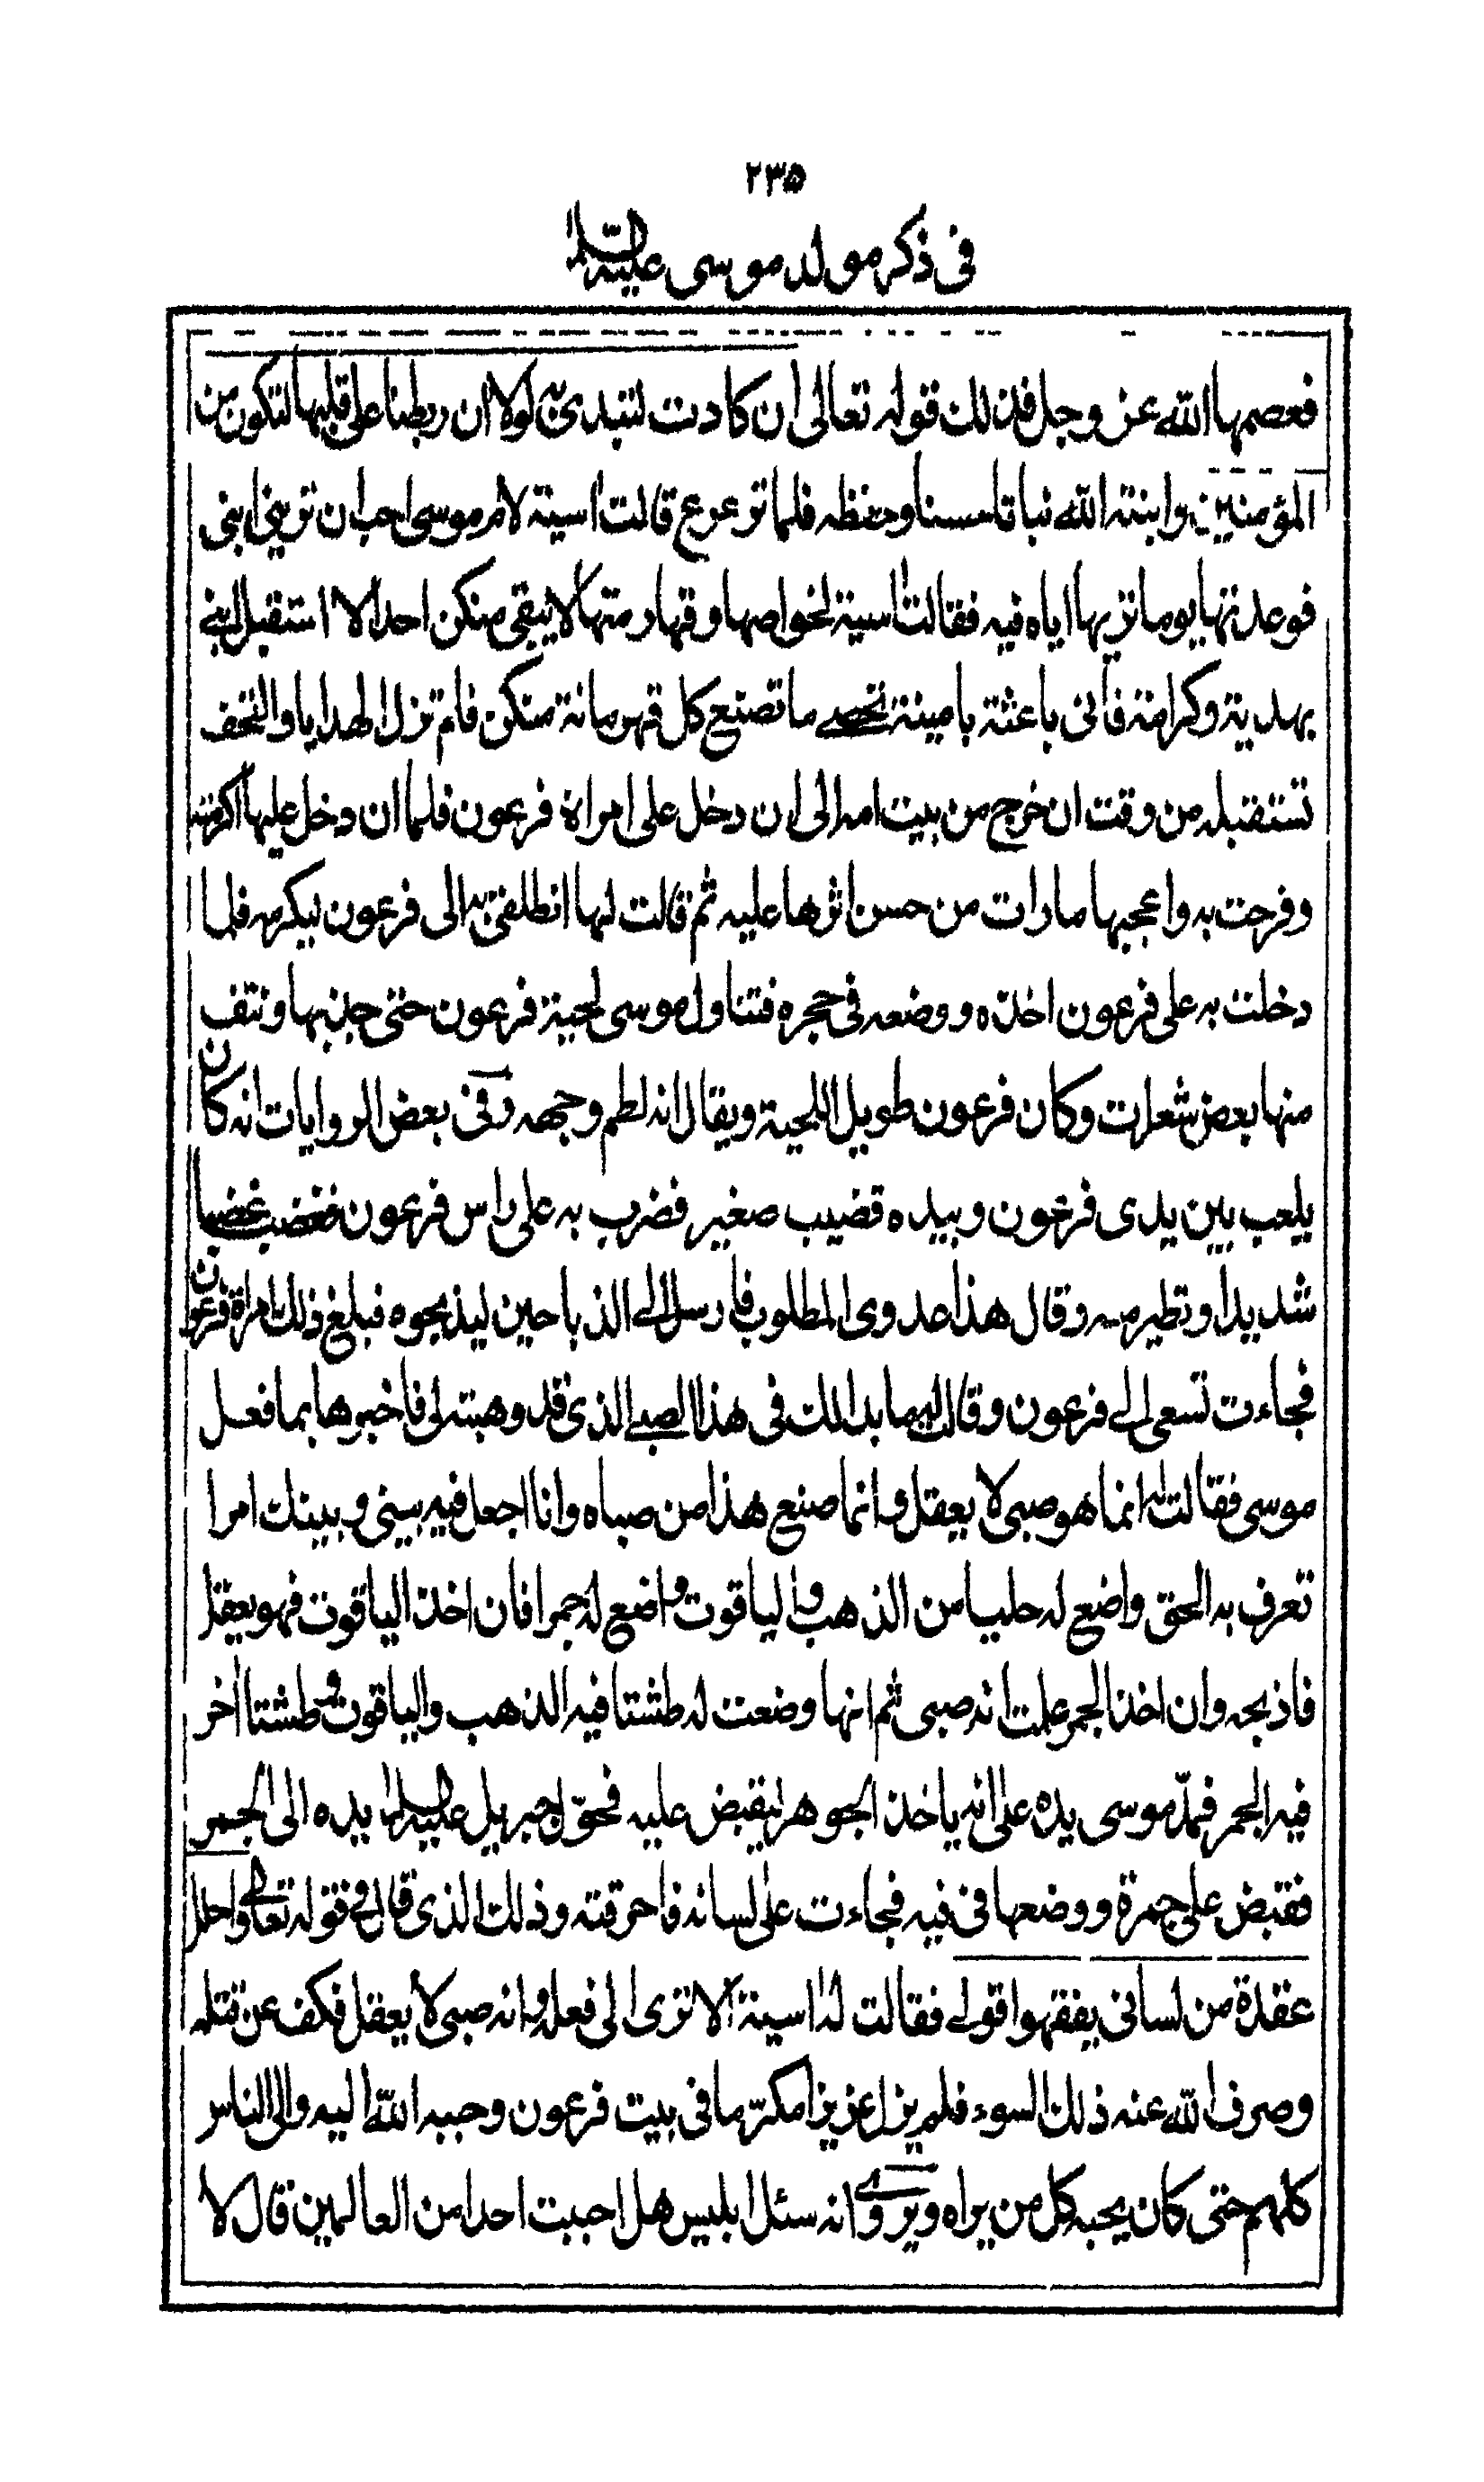 ٢٣٥
فى ذكر مولد موسى عليه السلام
فعصمها الله عز وجل فذلك قوله تعالى ان كادت لتبدى به لولا ان ربطنا على قلبها لتكون من
المؤمنين وابنته الله نباتا حسنا وحفظه فلما ترعرع قالت اسية لام موسى احب ان تريني ابنى
فوعدتها يوما تزيرها اياه فيه فقالت اسية لخواصها وقهارمتها لا يبقى منكن احد الا استقبل ابنى
بهدية وكرامة فانى باعثة بامينة تحصى ما تصنع كل قهرمانة منكن فلم تزل الهدايا والتحف
تستقبله من وقت ان خرج من بيت امه الى ان دخل على امراة فرعون فلما ان دخل عليها اكرمته
وفرحت به واعجبها ما رات من حسن اثرها عليه ثم قالت لها انطلقى به الى فرعون ليكرمه فلما
دخلت به على فرعون اخذه ووضعه فى حجره فتناول موسى لحية فرعون حتى جذبها ونتف
منها بعض شعرات وكان فرعون طويل اللحية ويقال انه لطم وجهه وفى بعض الروايات انه كان
يلعب بين يدى فرعون وبيده قضيب صغير فضرب به على راس فرعون فغضب غضبا
شديدا وتطير منه وقال هذا عدوى المطلوب فارسل الى الذباحين ليذبحوه فبلغ ذلك امراة فرعون
فجاءت تسعى الى فرعون وقالت له ما بدا لك فى هذا الصبى الذى قد وهبته لى فاخبرها بما فعل
موسى فقالت له انما هو صبى لا يعقل وانما صنع هذا من صباه وانا اجعل فيه بينى وبينك امرا
تعرف به الحق واضع له حليا من الذهب واليا قوت واضع له جمرا فان اخذ الياقوت فهو يعقل
فاذبحه وان اخذ الجمر علمت انه صبى ثم انها وضعت له طشتا فيه الذهب والياقوت وطشتا اخر
فيه الجمر فمدّ موسى يده على انه ياخذ الجوهر ليقبض عليه فحوّل جبريل عليه السلام يده الى الجمر
فقبض على جمرة ووضعها فى فيه فجاءت على لسانه فاحرقته وذلك الذى قال فى قوله تعالى واحلل
عقدة من لسانى يفقهوا قولى فقالت له اسية الا ترى الى فعله وانه صبى لا يعقل فكف عن قتله
وصرف الله عنه ذلك السوء فلم يزل عزيزا مكرّما فى بيت فرعون وحببه الله اليه والى الناس
كلهم حتى كان يحبه كل من يراه ويروى انه سئل ابليس هل احببت احدا من العالمين قال لا